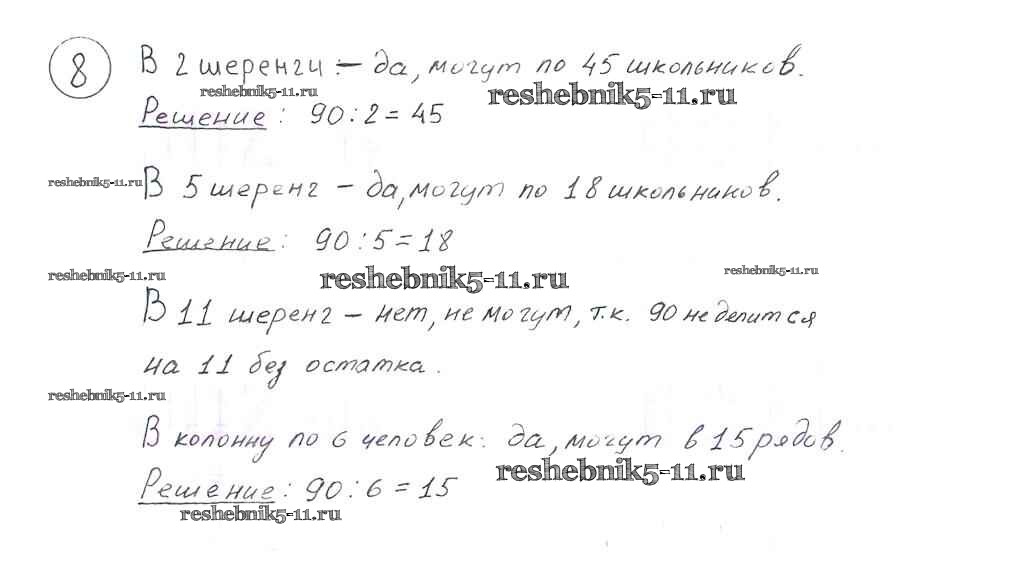 8 В 2 шеренги :— да, могут по 45 школьников.
reshebnik5-11.ru
reshebnik5-11.ru
Решение: 90:2=45
reshebnik5-11.ru
В 5 шеренг – да, могут по 18 школьников.
Решение: 90:5=18
reshebnik5-11.ru
reshebnik5-11.ru
reshebnik5-11.ru
В 11 шеренг – нет, не могут, т.к. 90 не делится
на 11 без остатка.
reshebnik5-11.ru
В колонну по 6 человек: да, могут в 15 рядов.
reshebnik5-11.ru
Решение: 90:6=15
reshebnik5-11.ru